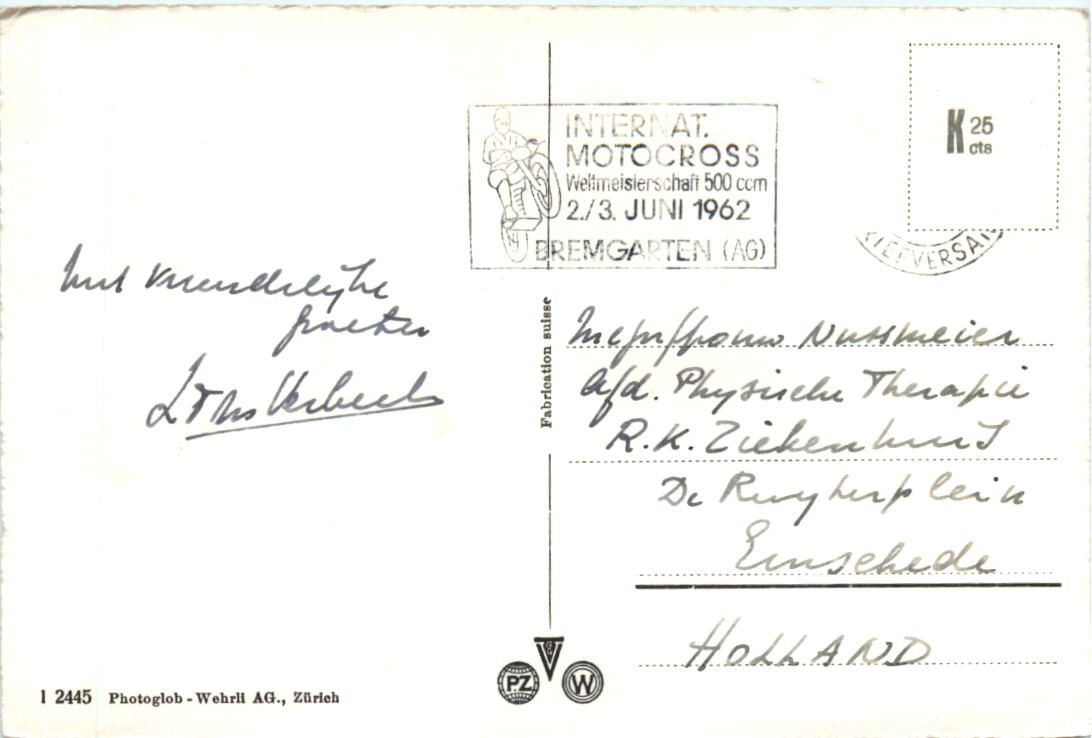 INTERNAT.
MOTOCROSS
Weltmeisterschaft 500 ccm
2./3. JUNI 1962
BREMGARTEN (AG)
K 25
cts
IEFVERSA
Met vriendelijke
groeten
Verbeek
Fabrication suisse
Mejuffrouw Nussmeier
Afd. Physische Therapie
R.K. Ziekenhuis
De Ruyterplein
Enschede
HOLLAND
PZ
W
1 2445 Photoglob-Wehrli AG., Zürich